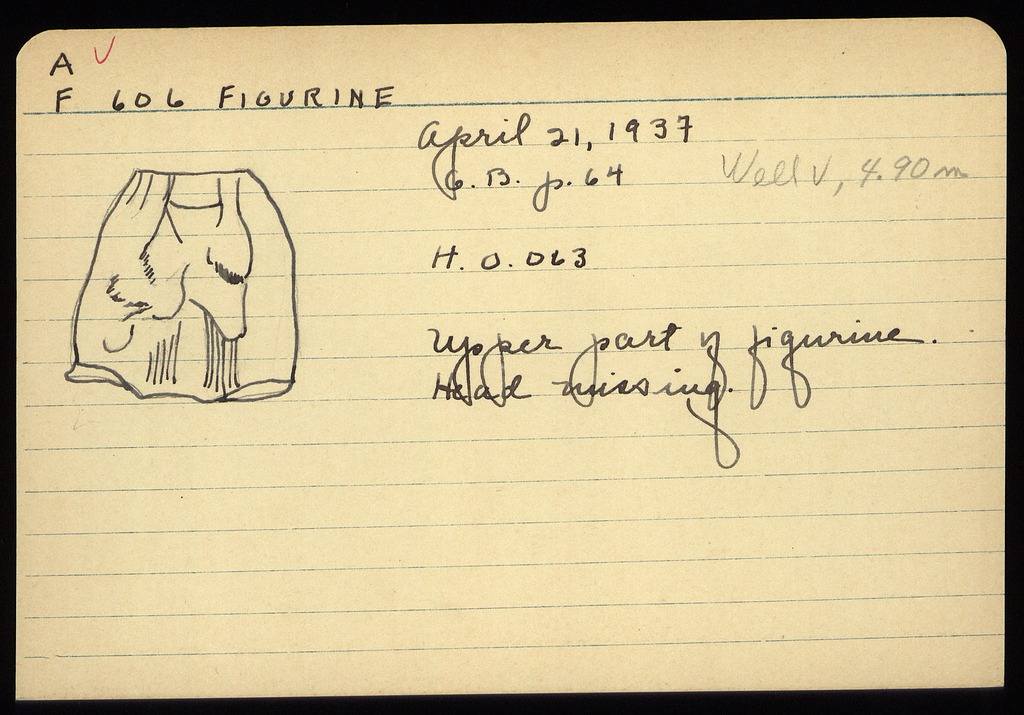 A ✓
F 606 FIGURINE
April 21, 1937
G. B. p. 64
Well V, 4.90 m
H. 0.063
Upper part of figurine.
Head missing.